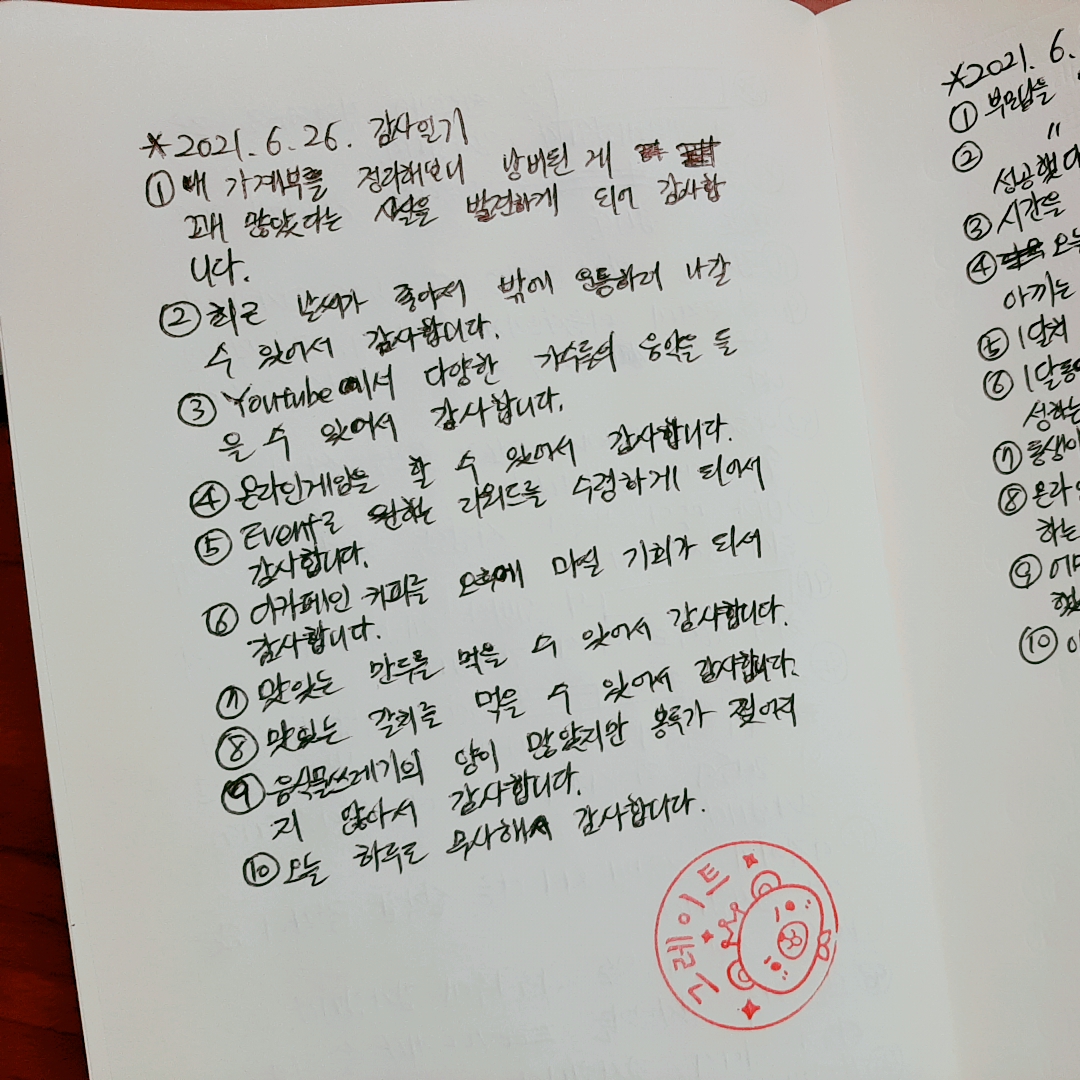 *2021. 6. 26. 감사일기
① 내 가계부를 정리해보니 낭비된 게
꽤 많았다는 사실을 발견하게 되어 감사합
니다.
② 최근 날씨가 좋아서 밖에 운동하러 나갈
수 있어서 감사합니다.
③ Youtube에서 다양한 가수들의 음악을 들
을 수 있어서 감사합니다.
④ 온라인게임을 할 수 있어서 감사합니다.
⑤ Event로 원하는 리워드를 수령하게 되어서
감사합니다.
⑥ 디카페인 커피를 오후에 마실 기회가 되서
감사합니다.
⑦ 맛있는 만두를 먹을 수 있어서 감사합니다.
⑧ 맛있는 갈비를 먹을 수 있어서 감사합니다.
⑨ 음식물쓰레기의 양이 많았지만 봉투가 찢어져
지 않아서 감사합니다.
⑩ 오늘 하루도 무사해서 감사합니다.
그레이트
*2021. 6.
① 부모님들
② 〃
성공했다
③ 시간을
④ 오늘
아끼는
⑤ 1달치
⑥ 1달동안
성하는
⑦ 동생이
⑧ 온라인
하는
⑨
⑩